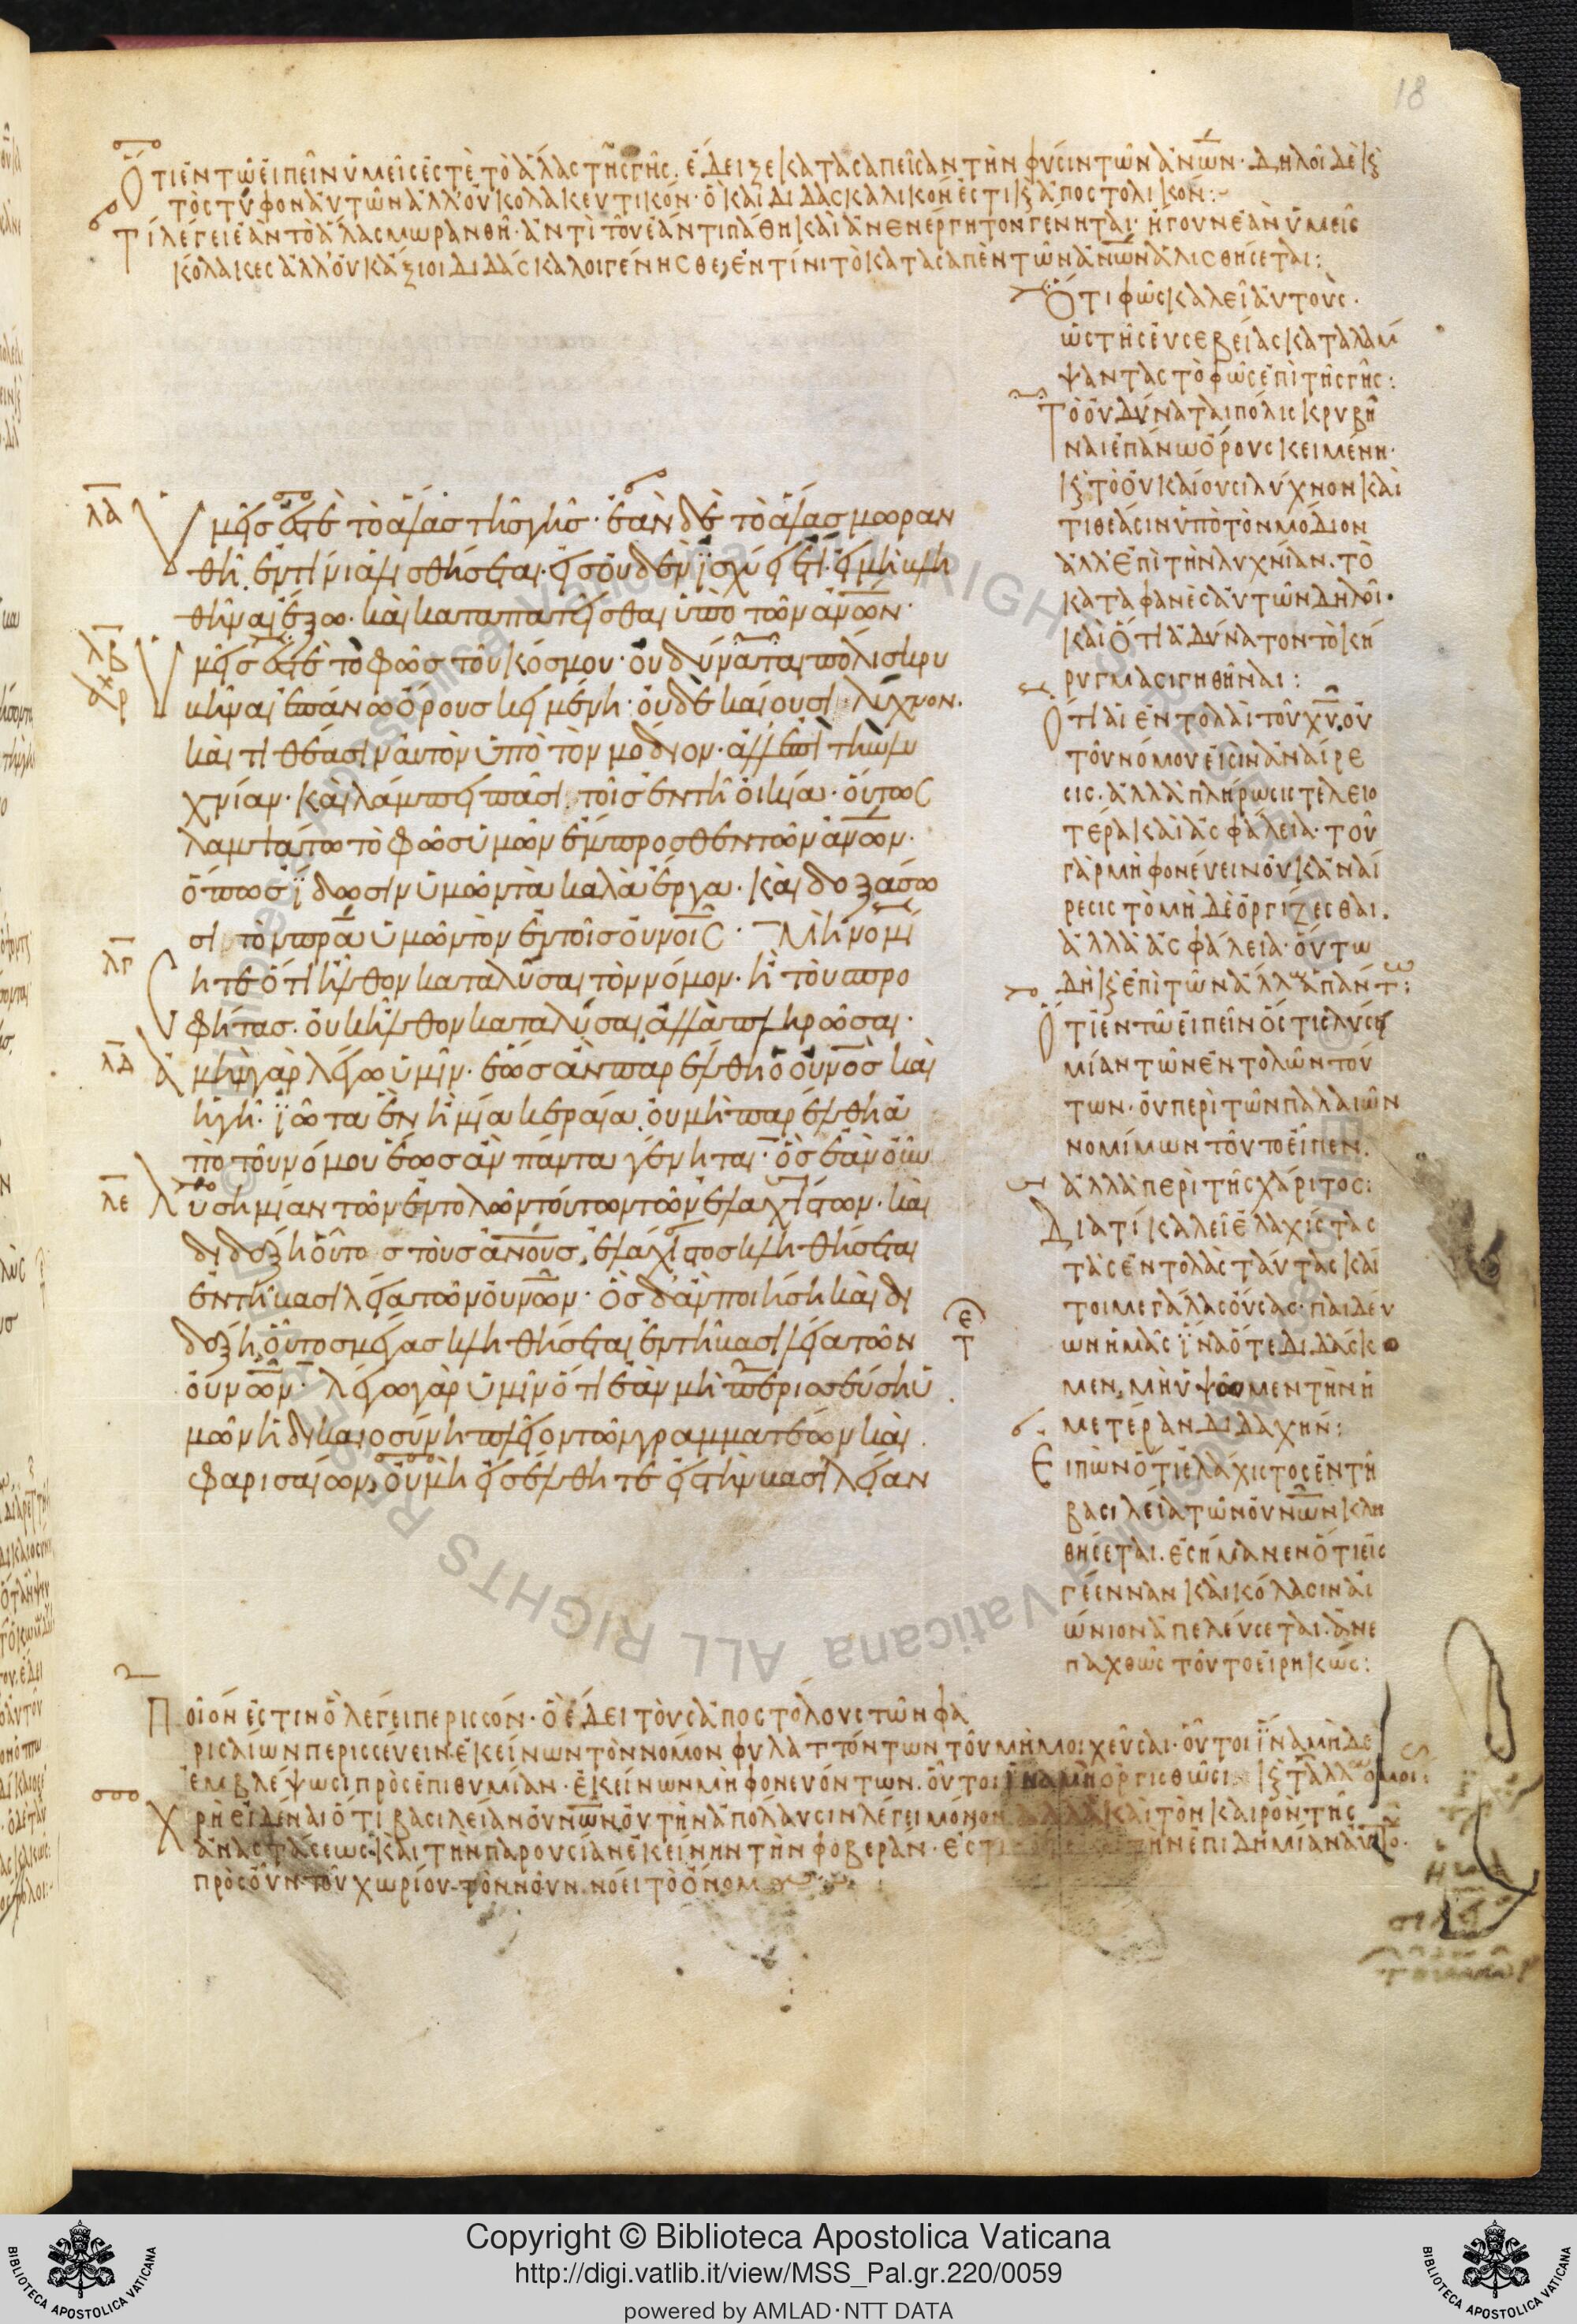 18
Ὅτι ἐν τῶ εἰπεῖν ὑμεῖς ἐστὲ τὸ ἅλας τῆς γῆς. ἔδειξε κατασαπεῖσαν τὴν φύσιν τῶν ἀνων· δηλοῖ δὲ κ
τὸ στύφον αὐτῶν ἀλλ' οὐ κολακευτικόν· ὃ καὶ διδασκαλικόν ἐστι κ ἀποστολικόν:
Τί λέγει ἐὰν τὸ ἅλας μωρανθῆ· ἀντὶ τοῦ ἐὰν τι πάθη καὶ ἀνενέργητον γένηται· ἤγουν ἐὰν ὑμεῖς
κόλακες ἀλλ' οὐκ ἄξιοι διδάσκαλοι γένησθε, ἐν τίνι τὸ κατασαπὲν τῶν ἀνων ἁλισθήσεται:
Ὅτι φῶς καλεῖ αὐτοὺς·
ὡς τῆς εὐσεβείας καταλάμ
ψαντας τὸ φῶς ἐπὶ τῆς γῆς:
Τὸ οὐ δύναται πόλις κρυβῆ
ναι ἐπάνω ὄρους κειμένη·
κ τὸ οὐ καίουσι λύχνον καὶ
τιθέασιν ὑπὸ τὸν μόδιον
ἀλλ' ἐπὶ τὴν λυχνίαν. τὸ
καταφανὲς αὐτῶν δηλοῖ·
καὶ ὅτι ἀδύνατον τὸ κή
ρυγμα σιγηθῆναι:
Ὅτι αἱ ἐντολαὶ τοῦ χυ. οὐ
τοῦ νόμου εἰσὶν ἀναίρε
σις. ἀλλὰ πλήρωσις τελειο
τέρα καὶ ἀσφάλεια· τοῦ
γὰρ μὴ φονεύειν οὐκ ἀναί
ρεσις τὸ μὴ δὲ ὀργίζεσθαι.
ἀλλὰ ἀσφάλεια· οὕτω
δὴ κ ἐπὶ τῶν ἄλλων ἁπάντ:
Ὅτι ἐν τῶ εἰπεῖν ὅστις λύσει
μίαν τῶν ἐντολῶν τού
των· οὐ περὶ τῶν παλαιῶν
νομίμων τοῦτο εἶπεν.
ἀλλὰ περὶ τῆς χάριτος:
Διατί καλεῖ ἐλαχίστας
τὰς ἐντολὰς ταύτας καί
τοι μεγάλας οὔσας· παιδεύ
ων ἡμᾶς ἵνα ὅτε διδάσκο
μεν, μὴ ὑψοῦμεν τὴν ἡ
μετέραν διδαχήν:
Εἰπὼν ὅτι ἐλάχιστος ἐν τῆ
βασιλεία τῶν οὐνων κλη
θήσεται. ἐσήμανεν ὅτι εἰς
γέενναν καὶ κόλασιν αἰ
ώνιον ἀπελεύσεται. ἀνε
παχθῶς τοῦτο εἰρηκώς:
λα ὑμεῖς ἐστὲ τὸ ἅλας τῆς γῆς· ἐὰν δὲ τὸ ἅλας μωραν
θῆ ἐν τίνι ἁλισθήσεται· εἰς οὐδὲν ἰσχύει ἔτι· εἰ μὴ βλη
θῆναι ἔξω· καὶ καταπατεῖσθαι ὑπὸ τῶν ἀνων·
λβ ὑμεῖς ἐστὲ τὸ φῶς τοῦ κόσμου· οὐ δύναται πόλις κρυ
βῆναι ἐπάνω ὄρους κειμένη· οὐδὲ καίουσι λύχνον.
καὶ τιθέασιν αὐτὸν ὑπὸ τὸν μόδιον· ἀλλ' ἐπὶ τὴν λυ
χνίαν· καὶ λάμπει πᾶσι τοῖς ἐν τῆ οἰκία· οὕτως
λαμψάτω τὸ φῶς ὑμῶν ἔμπροσθεν τῶν ἀνων·
ὅπως ἴδωσιν ὑμῶν τὰ καλὰ ἔργα· καὶ δοξάσω
σι τὸν πρα ὑμῶν τὸν ἐν τοῖς οὐνοις· Μὴ νομί
λγ
σητε ὅτι ἦλθον καταλῦσαι τὸν νόμον· ἢ τοὺς προ
φήτας· οὐκ ἦλθον καταλῦσαι ἀλλὰ πληρῶσαι·
λδ ἀμὴν γὰρ λέγω ὑμῖν· ἕως ἂν παρέλθη ὁ οὐνος καὶ
ἡ γῆ· ἰῶτα ἓν ἢ μία κεραία οὐ μὴ παρέλθη ἀ
πὸ τοῦ νόμου ἕως ἂν πάντα γένηται· ὃς ἐὰν οὖν
λε λύση μίαν τῶν ἐντολῶν τούτων τῶν ἐλαχίστων· καὶ
διδάξη οὕτως τοὺς ἀνους, ἐλάχιστος κληθήσεται
ἐν τῆ βασιλεία τῶν οὐνων· ὃς δ' ἂν ποιήση καὶ δι
δάξη, οὗτος μέγας κληθήσεται ἐν τῆ βασιλεία τῶν
οὐνων· λέγω γὰρ ὑμῖν ὅτι ἐὰν μὴ περισσεύση ὑ
μῶν ἡ δικαιοσύνη πλεῖον τῶν γραμματέων καὶ
φαρισαίων, οὐ μὴ εἰσέλθητε εἰς τὴν βασιλείαν
Ποῖόν ἐστιν ὃ λέγει περισσόν· ὃ ἔδει τοὺς ἀποστόλους τῶν φα
ρισαίων περισσεύειν· ἐκείνων τὸν νόμον φυλαττόντων τοῦ μὴ μοιχεῦσαι· οὗτοι ἵνα μὴ δὲ
ἐμβλέψωσι πρὸς ἐπιθυμίαν· ἐκείνων μὴ φονευόντων. οὗτοι ἵνα μὴ ὀργισθῶσι κ τἄλλα ὁμοι:
Χρὴ εἰδέναι ὅτι βασιλείαν οὐνων οὐ τὴν ἀπόλαυσιν λέγει μόνον ἀλλὰ καὶ τὸν καιρὸν τῆς
ἀναστάσεως· καὶ τὴν παρουσίαν ἐκείνην τὴν φοβεράν· ἔστι τὴν ἐπιδημίαν
πρὸς οὖν τοῦ χωρίου τὸν νοῦν νόει τὸ ὄνομ
Copyright © Biblioteca Apostolica Vaticana
http://digi.vatlib.it/view/MSS_Pal.gr.220/0059
powered by AMLAD·NTT DATA
BIBLIOTECA APOSTOLICA VATICANA
BIBLIOTECA APOSTOLICA VATICANA